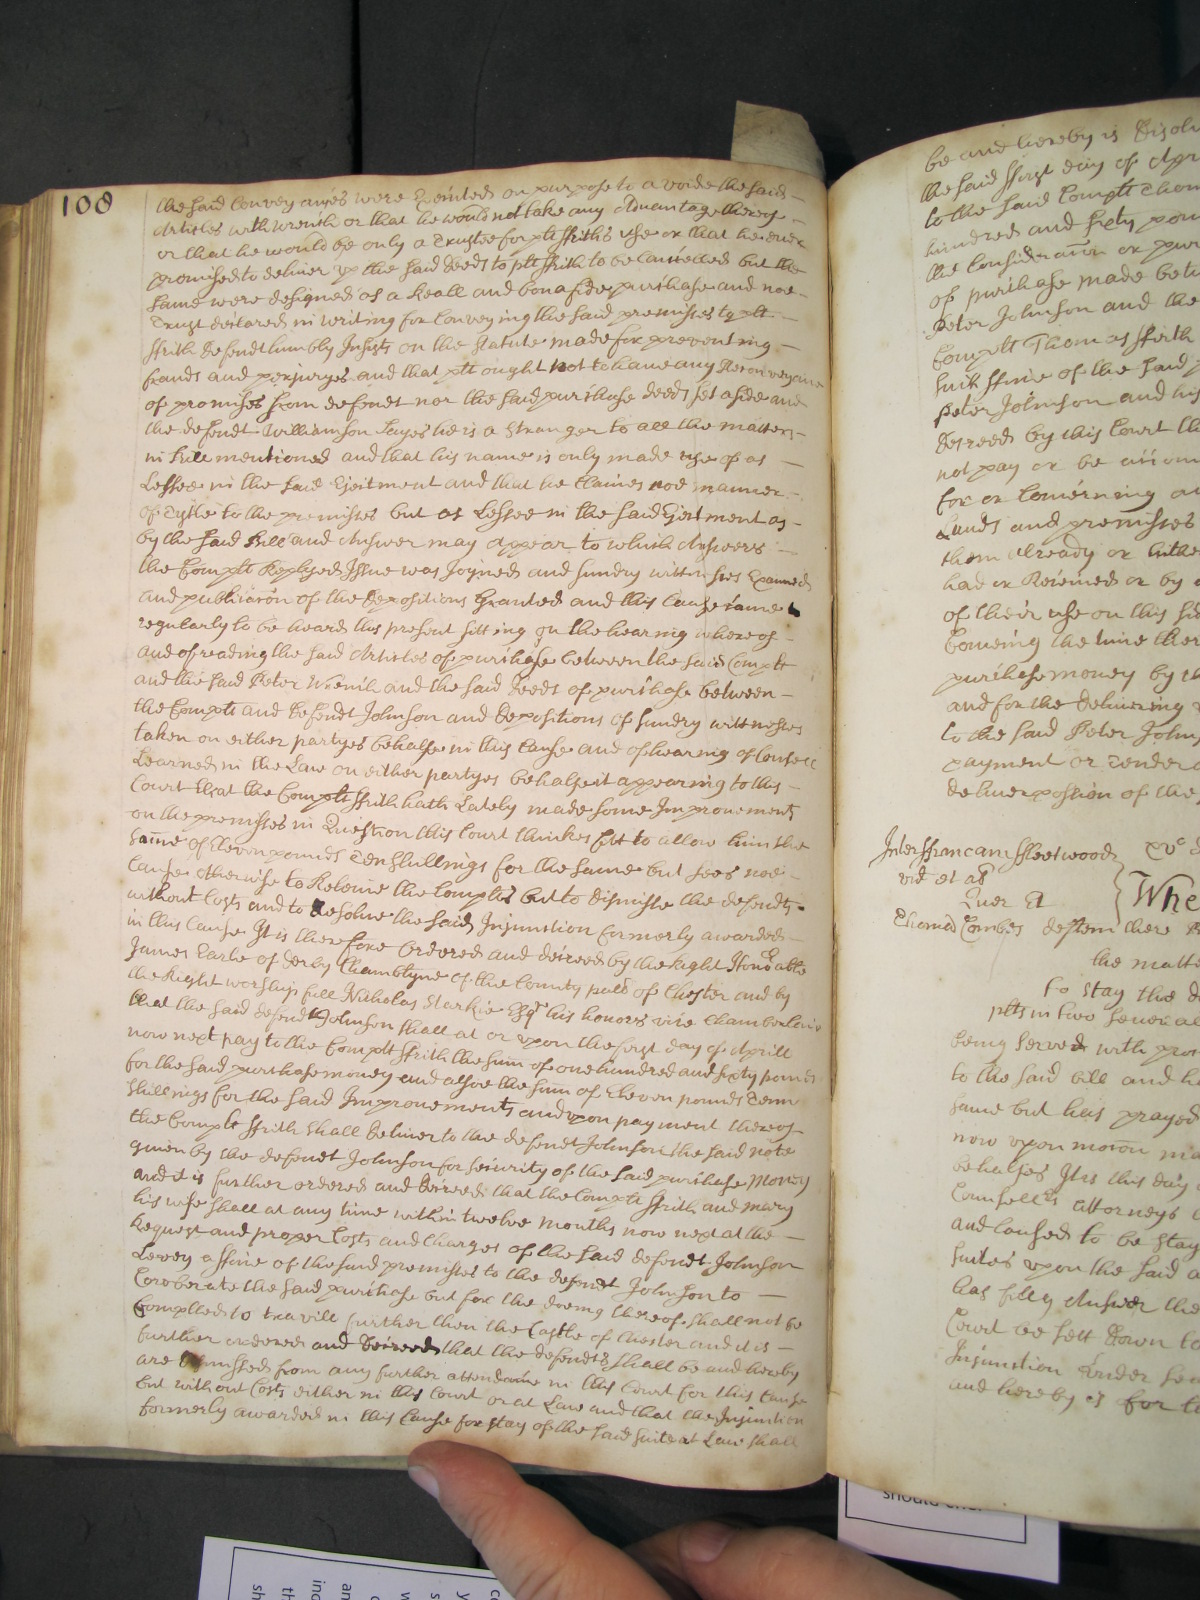 108
the said Conveyances were Executed on purpose to avoide the said
Articles with Wrench or that he would not take any Advantage thereof
or that he would be only a Trustee for plt ffriths use or that he ever
promised to deliver up the said deeds to plt ffrith to be Cancelled but the
same were designed as a Reall and bona fide purchase and noe
Trust declared in writing for Conveying the said premisses to plt
ffrith defendt humbly Insists on the Statute made for preventing
frauds and perjuryes and that plt ought not to have any Reconveyance
of premisses from defendt nor the said purchase deeds set aside and
the defendt Williamson sayes he is a stranger to all the matters
in bill mentioned and that his name is only made use of as
Lessee in the said Ejectment and that he Claimes noe manner
of Tytle to the premisses but as Lessee in the said Ejectment as
by the said Bill and Answer may appear to which Answers
the Complt Replyed Issue was Joyned and sundry wittnesses Examined
and publicacon of the depositions Granted and this Cause came
regularly to be heard this present sitting on the hearing whereof
and of reading the said Articles of purchase between the said Complt
and the said Peter Wrench and the said Deeds of purchase between
the Complt and defendt Johnson and depositions of sundry wittnesses
taken on either partyes behalfe in this Cause and of hearing of Councell
Learned in the Law on either partyes behalfe it appearing to this
Court that the Complt ffrith hath Lately made some Improvements
on the premisses in Question this Court thinkes fitt to allow him the
same of Eleven pounds Ten shillings for the same but sees noe
Cause otherwise to Releive the Complts but to dismisse the defendts
without Costs and to desolve the said Injunction formerly awarded
in this Cause It is therefore Ordered and decreed by the Right Honoble
James Earle of Derby Chamblyne of the County pald of Chester and by
the Right worshipfull Nicholas Starkie Esqr his honors vice Chamberlaine
that the said defendt Johnson shall at or upon the first day of Aprill
now next pay to the Complt ffrith the sum of one hundred and sixty pounds
for the said purchase money and alsoe the sum of Eleven pounds Tenn
shillings for the said Improvements and upon payment thereof
the Complt ffrith shall deliver to the defendt Johnson the said note
given by the defendt Johnson for security of the said purchase Money
and it is further ordered and decreed that the Complt ffrith and Mary
his wife shall at any time within twelve months now next at the
Request and proper Costs and Charges of the said defendt Johnson
Levey a ffine of the said premisses to the defendt Johnson to
Coroberate the said purchase but for the doeing thereof shall not be
Complled to travill further then the Castle of Chester and it is
further ordered and decreed that the defendts shall be and hereby
are dismissed from any further attendance in this Court for this Cause
but without Costs either in this Court or at Law and that the Injunction
formerly awarded in this Cause for stay of the said suite at Law shall
be and hereby is Disolv
the said ffirst day of Apr
to the said Complt Thom
hundred and sixty poun
the Consideracon or pur
of purchase made betw
Peter Johnson and the
Complt Thomas ffrith
such ffine of the said p
Peter Johnson and his
decreed by this Court th
not pay or be accom
for or Concerning a
Lands and premisses
them already or hithe
had or Received or by
of their use on this si
Covering the time ther
purchase money by th
and for the delivering
to the said Peter Johns
payment or Tender
deliver possion of the
Inter ffrancam ffleetwood
vid et al
Quer Et
Thomas Combes deftem
Whe
there
the matte
to stay the d
plts in two several
being served with pro
to the said bill and h
same but has prayed
now upon motion ma
behalfes It is this day
Counsells attorneys
and Caused to be stay
suites upon the said
has fully Answer the
Court be sett Down to
Injunction under sea
and hereby is for t